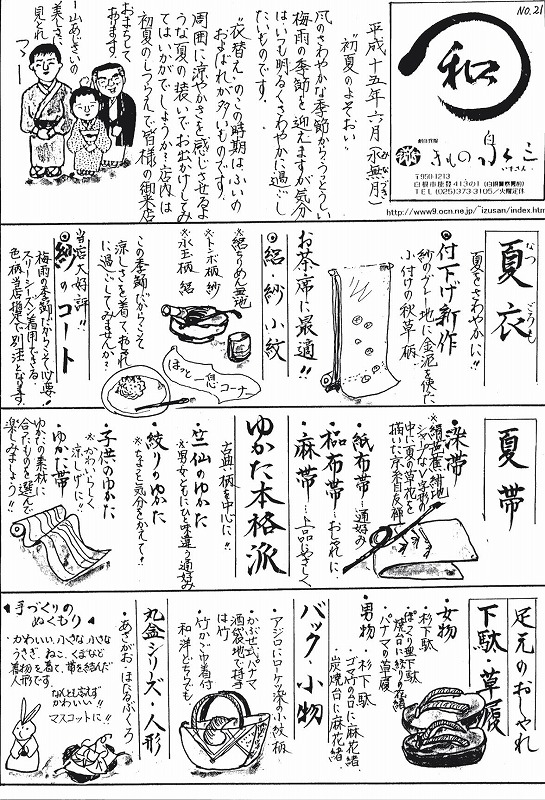 NO.21
和
きもの 泉三
いずさん
〒950-1213
白根市能登413の1
TEL (025)373-3105/火曜定休
http://www9.ocn.ne.jp/~izusan/index.htm
平成十五年六月(水無月)
みなづき
"初夏のよそおい"
風のさわやかな季節からうっとうしい
梅雨の季節を迎えますが気分
はいつも明るくさわやかに過ごし
たいものです。
"衣替え"のこの時期はふいの
およばれが多いものです。
周囲に涼やかさを感じさせるよ
うな"夏"の装いでお出かけしてみ
てはいかがでしょうか?店内は
初夏のしつらえで皆様の御来店
おまちして
おります。
山あじさいの
美しさに
見とれ
つつ
夏衣
なつごろも
夏をさわやかに!!
付下げ新作
紗のボカシ地に金泥を使った
小付けの秋草柄
お茶席に最適!!
絽 紗 小紋
※絽ちりめん無地
※トンボ柄 紗
※水玉柄 絽
この季節だからこそ
涼しさを着て、おしゃれ
に過ごしてみませんか?
ほっと一息コーナー
紗のコート
当店大好評!!
梅雨の季節だからこそ必要!
スリーシーズン着用できる
色柄、当店指定で別注となります。
夏帯
・染帯
※絹芭蕉、緋地
中に夏の草花を
描いた京友禅
・紙布帯…通好み
・科布帯…おしゃれに
・麻帯…上品にやさしく
ゆかた本格派
古典柄を中心に!!
・竺仙のゆかた
※男女ともにひと味違う通好み
・絞りのゆかた
※ちょっと気分をかえて!!
・子供のゆかた
※かわいらしく
涼しげに!!
・ゆかた帯
ゆかたの素材に
合ったものを選んで
楽しみましょう!!
足元のおしゃれ
下駄・草履
女物
・杉下駄
・ぽっくり型下駄
焼台に絞りの鼻緒
・パナマの草履
男物
・杉下駄
ゴマ竹の台に麻花緒
・炭焼台に麻花緒
バック・小物
・アジロにローケツ染の小紋柄
・かぶせ式パナマ
酒袋地で持手
は竹
・竹かご巾着付
和洋どちらでも
丸盆シリーズ・人形
・あさがお ほたるぶくろ
手づくりの
ぬくもり
・かわいい、小さな小さな
うさぎ、ねこ、くまなど
着物を着て、帯を結んだ
人形です。
なんとも言えず
かわいい!!
マスコットに!!